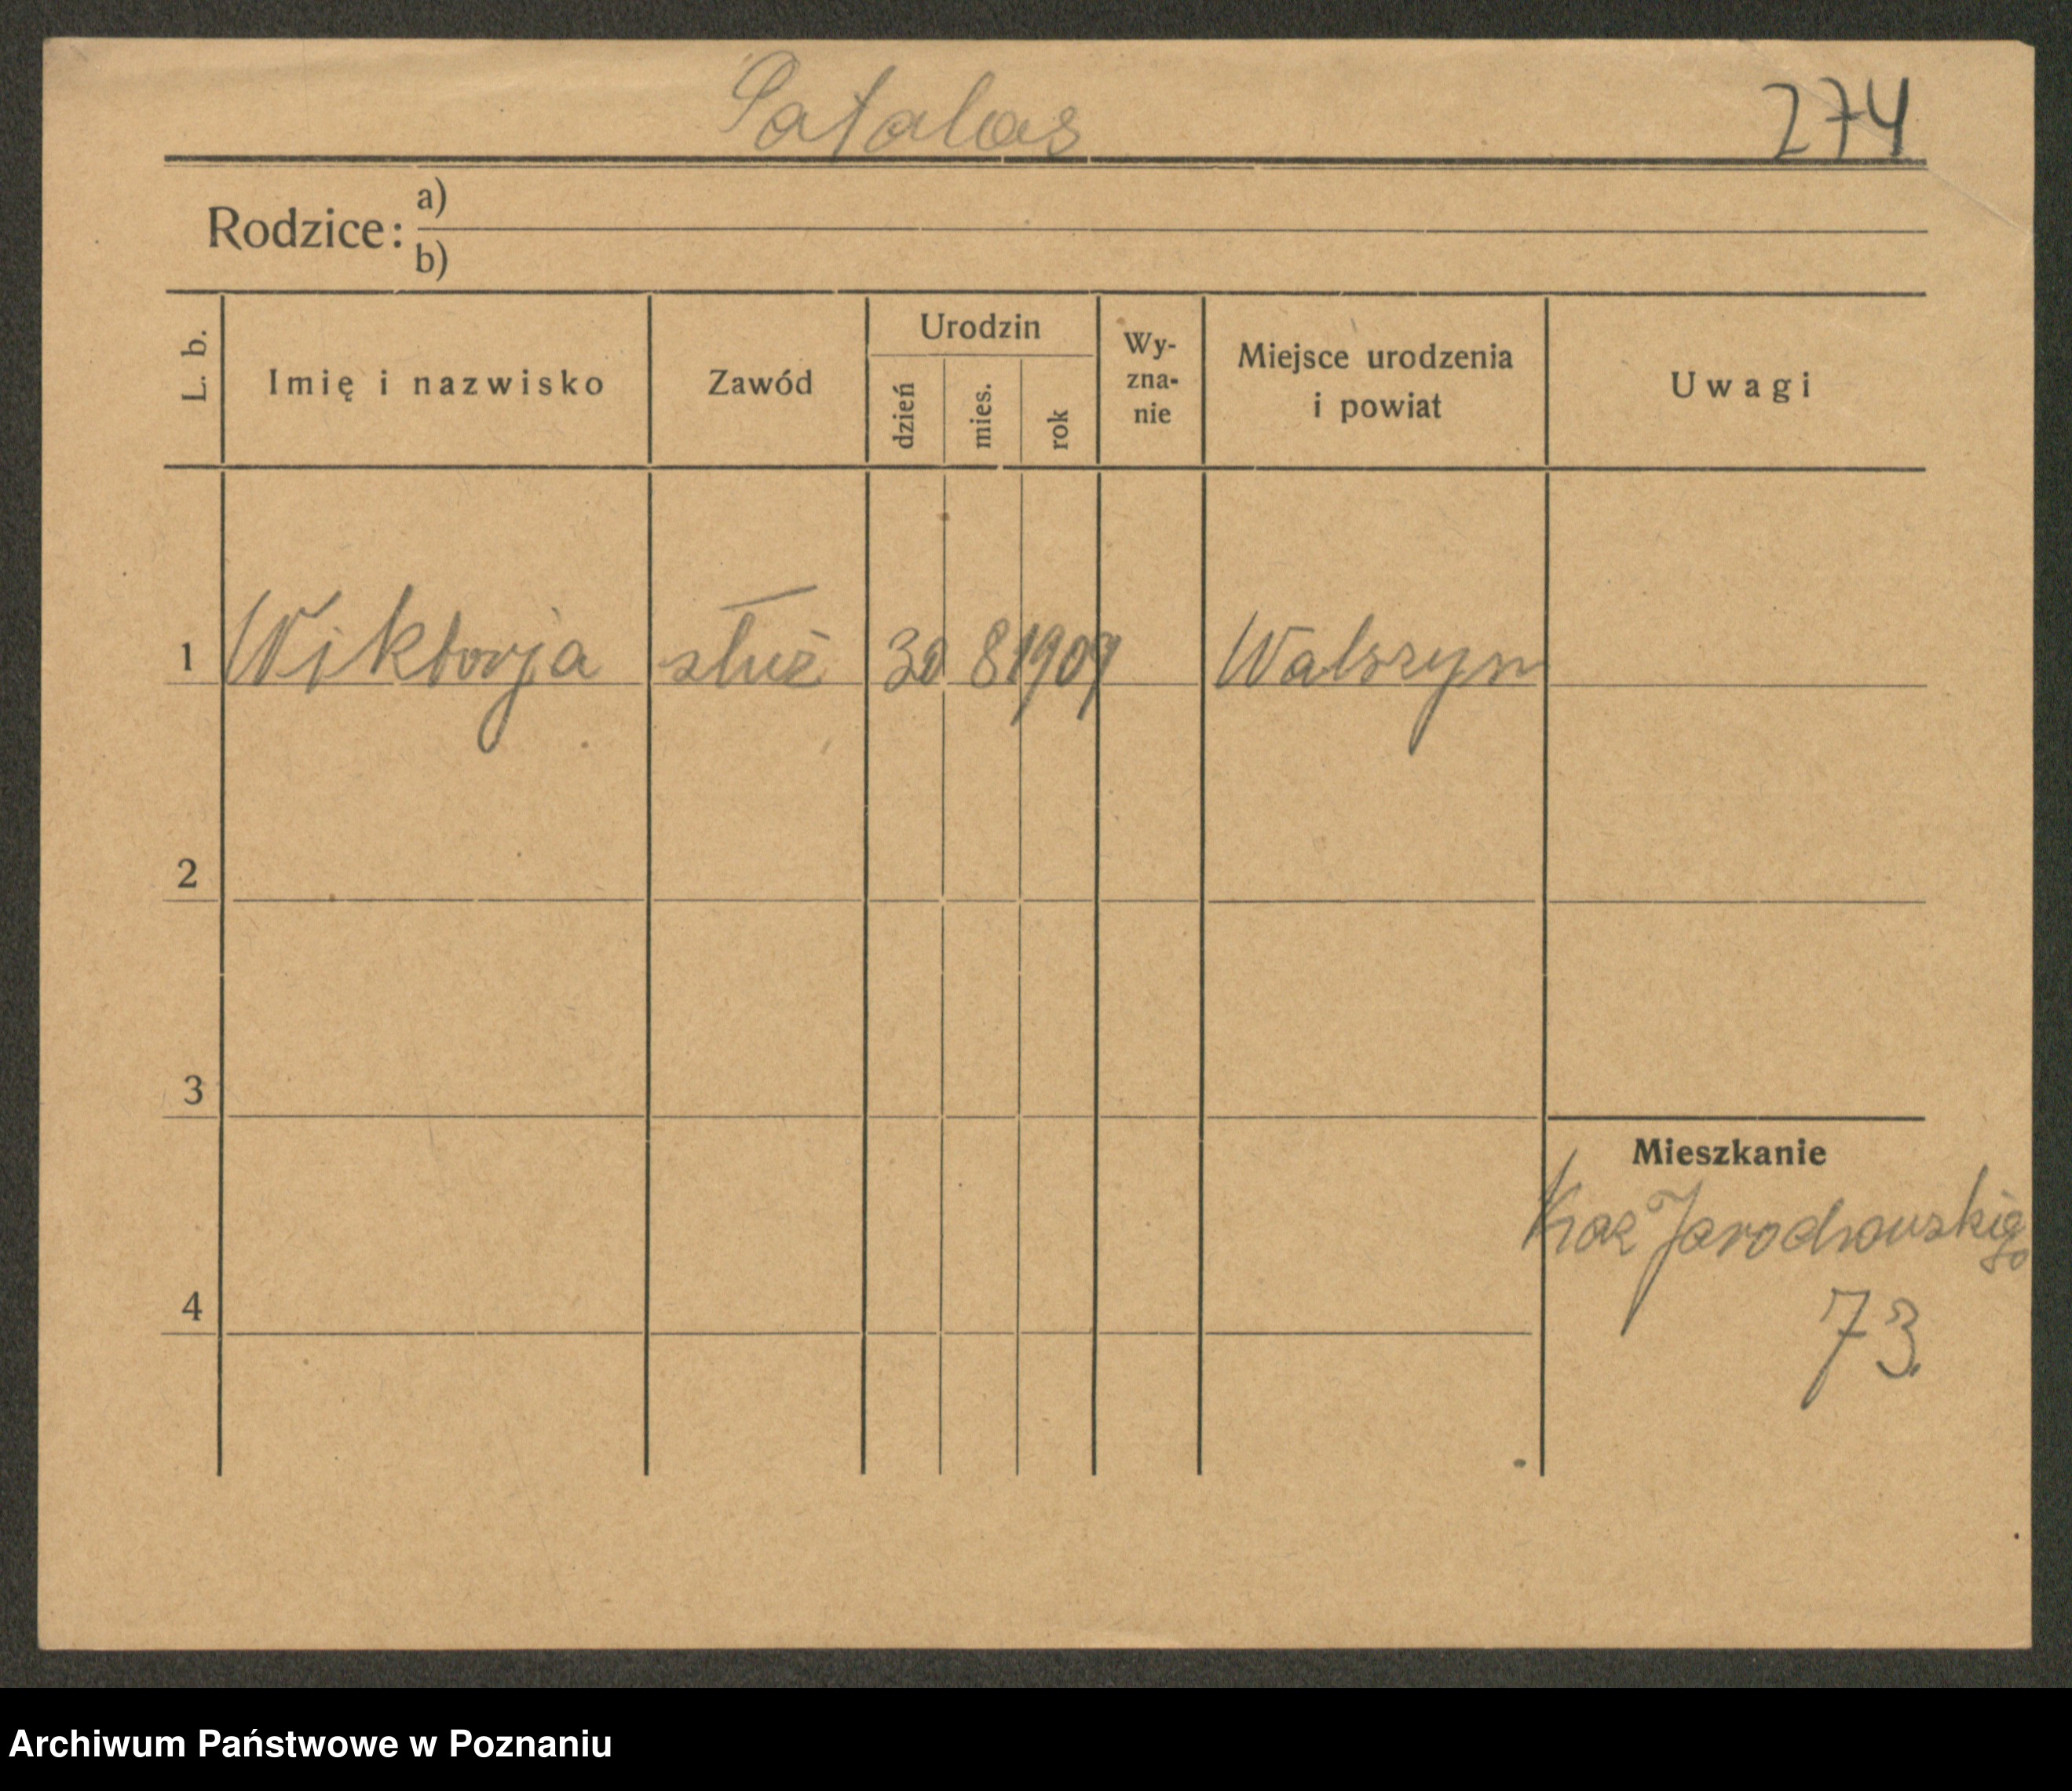 Patalas 274
Rodzice: a)
b)
L. b. Imię i nazwisko Zawód Urodzin dzień mies. rok Wy-zna-nie Miejsce urodzenia i powiat Uwagi
1 Wiktorja służ 30 8 1909 Walszyn
2
3
Mieszkanie
Kaz Jarochowskiego
4
73.
Archiwum Państwowe w Poznaniu